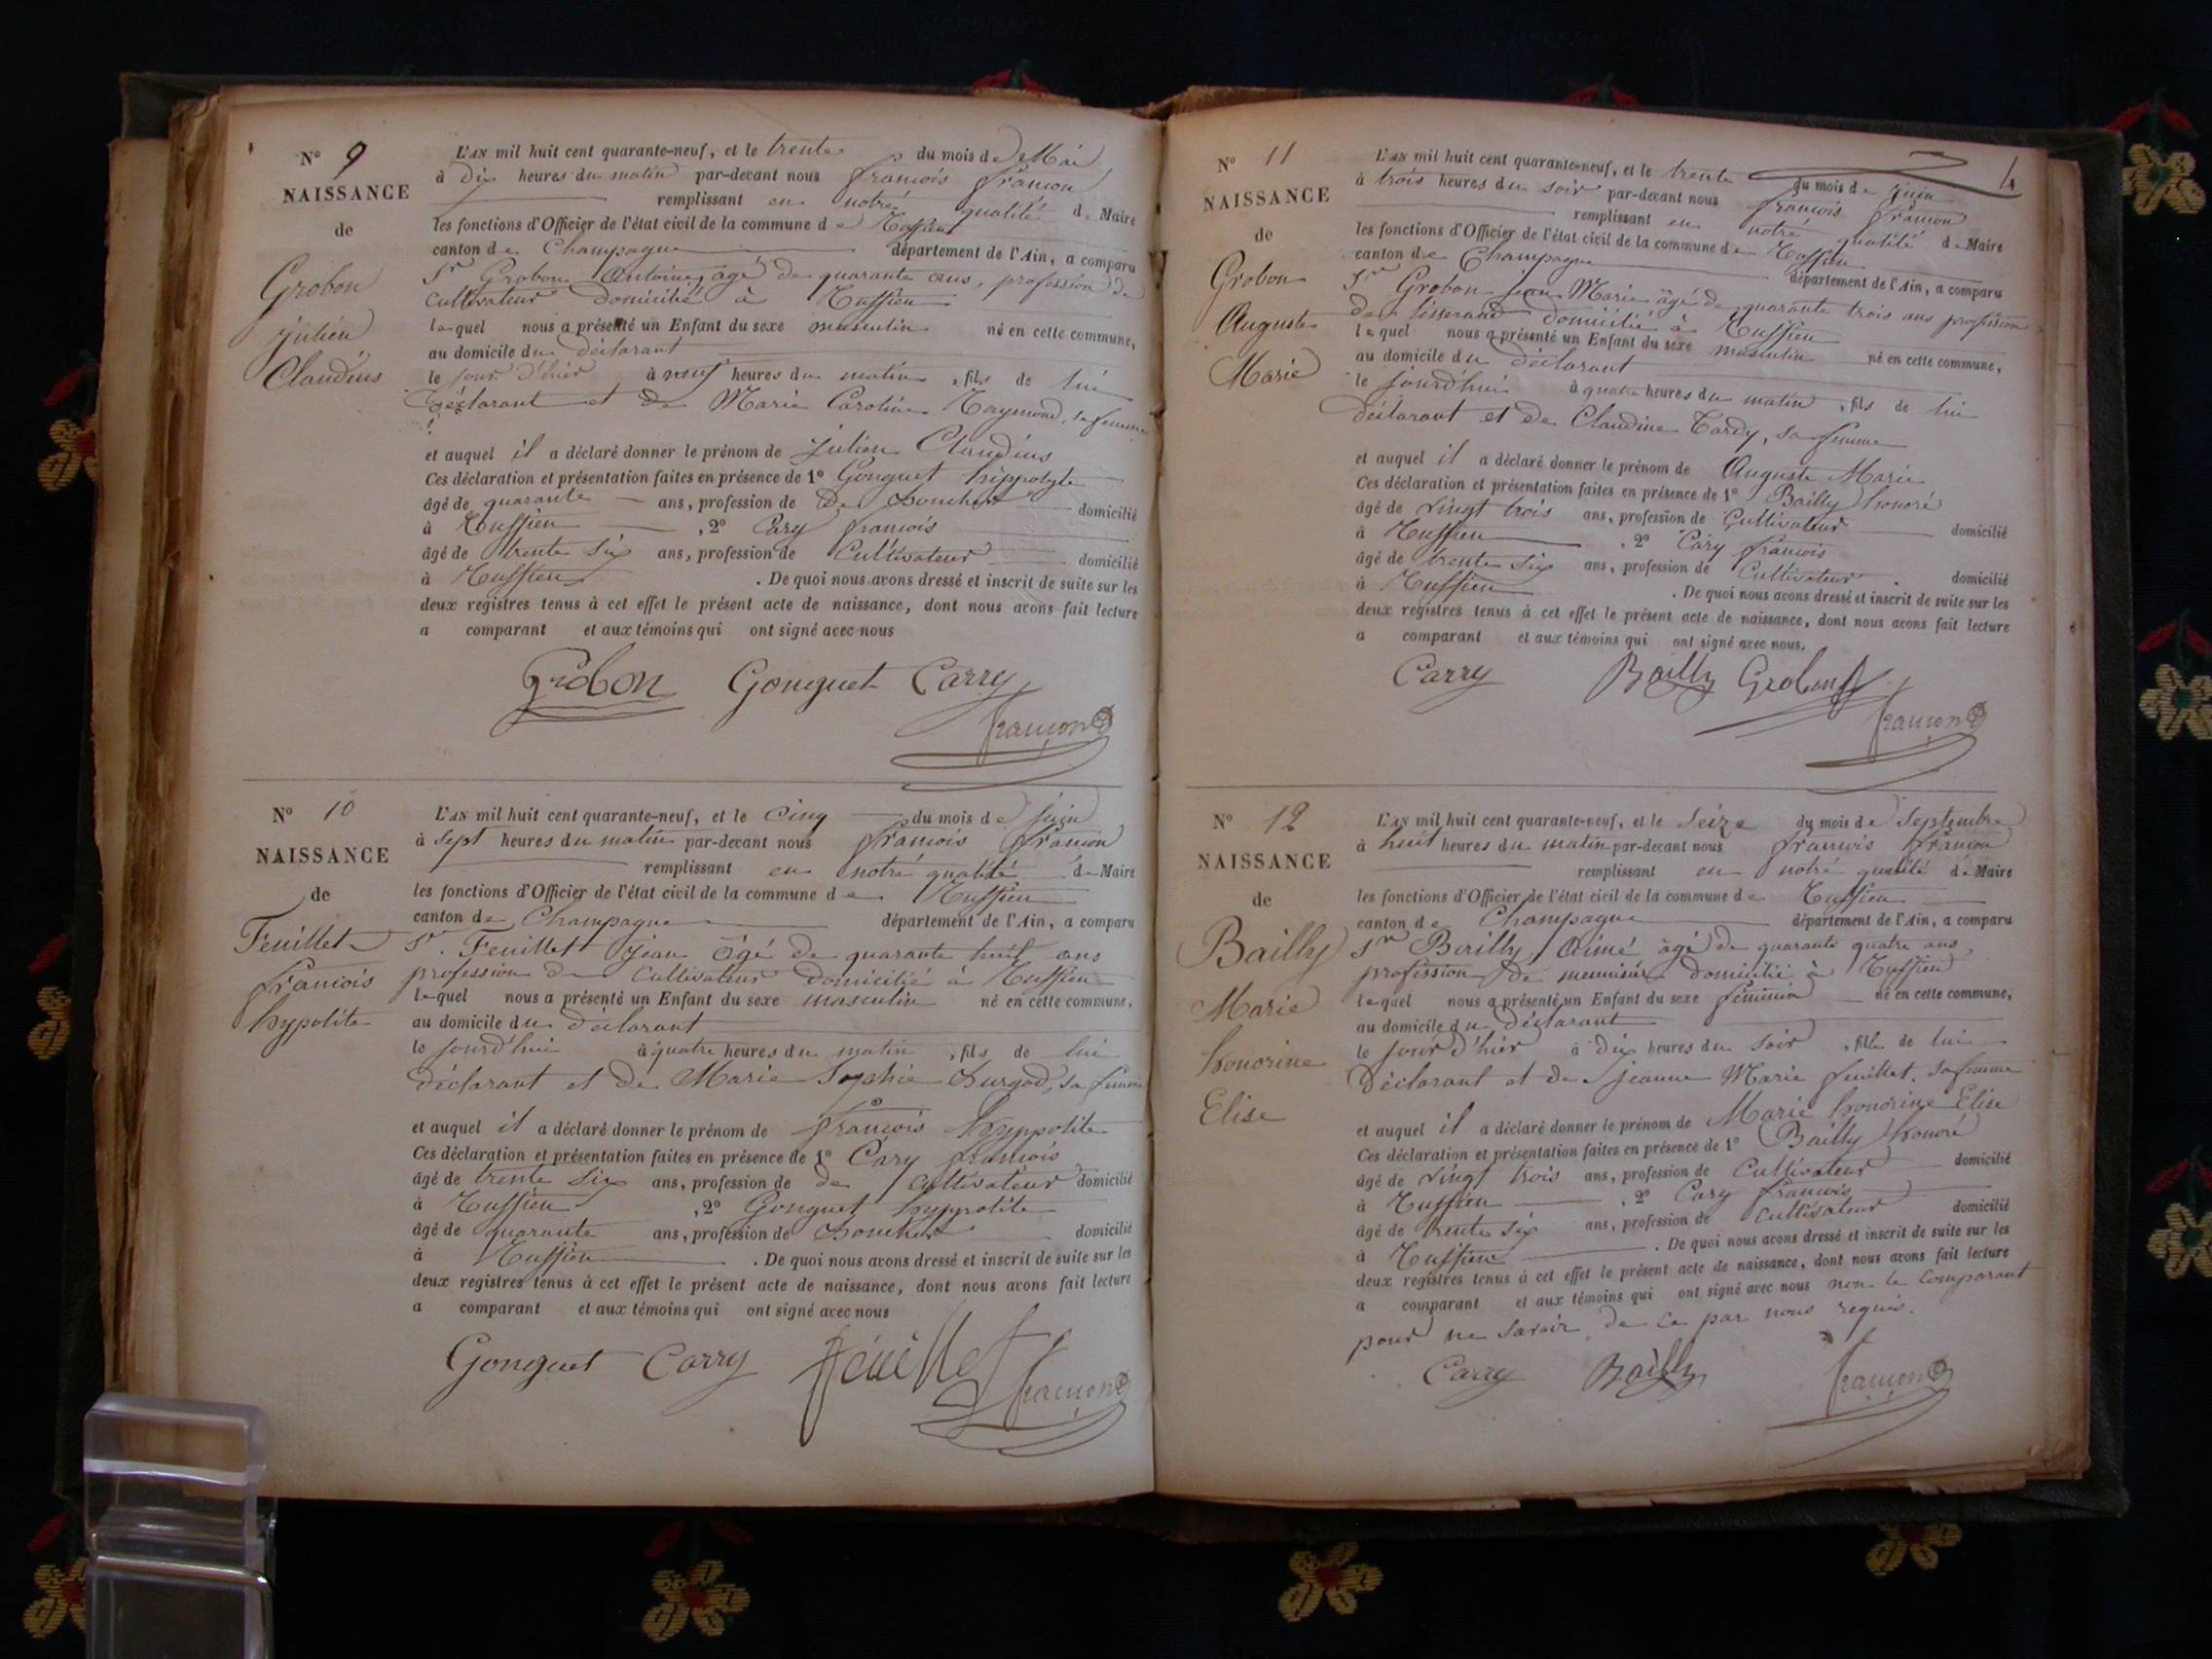 N° 9
NAISSANCE
de
Grobon
Julien
Claudius
L'AN mil huit cent quarante-neuf, et le trente du mois de Mai
à Dix heures du matin par-devant nous francois francon
remplissant en notre qualité de Maire
les fonctions d'Officier de l'état civil de la commune de Ruffieu
canton de Champagne département de l'Ain, a comparu
Sr Grobon Antoine, âgé de quarante ans, profession de
Cultivateur domicilié à Ruffieu
lequel nous a présenté un Enfant du sexe masculin né en cette commune,
au domicile du déclarant
le jour d'hier à neuf heures du matin , fils de lui
déclarant et de Marie Caroline Raymond, sa femme
et auquel il a déclaré donner le prénom de Julien Claudius
Ces déclaration et présentation faites en présence de 1° Gonguet hippolyte
âgé de quarante ans, profession de De Boucher domicilié
à Ruffieu , 2° Cary francois
âgé de trente six ans, profession de Cultivateur domicilié
à Ruffieu . De quoi nous avons dressé et inscrit de suite sur les
deux registres tenus à cet effet le présent acte de naissance, dont nous avons fait lecture
a comparant et aux témoins qui ont signé avec nous
Grobon Gonguet Carry
francon
N° 10
NAISSANCE
de
Feuillet
francois
hypolite
L'AN mil huit cent quarante-neuf, et le Cinq du mois de juin
à Sept heures du matin par-devant nous francois francon
remplissant en notre qualité de Maire
les fonctions d'Officier de l'état civil de la commune de Ruffieu
canton de Champagne département de l'Ain, a comparu
Sr. Feuillet Jean âgé de quarante huit ans
profession de Cultivateur domicilié à Ruffieu
lequel nous a présenté un Enfant du sexe masculin né en cette commune,
au domicile du déclarant
le jourd'hui à quatre heures du matin , fils de lui
déclarant et de Marie Sophie Burgod, sa femme
et auquel il a déclaré donner le prénom de francois hyppolite
Ces déclaration et présentation faites en présence de 1° Cary francois
âgé de trente six ans, profession de de Cultivateur domicilié
à Ruffieu , 2° Gonguet hyppolite
âgé de quarante ans, profession de Boucher domicilié
à Ruffieu . De quoi nous avons dressé et inscrit de suite sur les
deux registres tenus à cet effet le présent acte de naissance, dont nous avons fait lecture
a comparant et aux témoins qui ont signé avec nous
Gonguet Carry feuillet
francon
4
N° 11
NAISSANCE
de
Grobon
Auguste
Marie
L'AN mil huit cent quarante-neuf, et le trente du mois de Juin
à trois heures du soir par-devant nous francois francon
remplissant en notre qualité de Maire
les fonctions d'Officier de l'état civil de la commune de Ruffieu
canton de Champagne département de l'Ain, a comparu
Sr Grobon jean Marie âgé de quarante trois ans profession
de tisserand domicilié à Ruffieu
lequel nous a présenté un Enfant du sexe masculin né en cette commune,
au domicile du déclarant
le jourd'hui à quatre heures du matin , fils de lui
déclarant et de Claudine Tardy, sa femme
et auquel il a déclaré donner le prénom de Auguste Marie
Ces déclaration et présentation faites en présence de 1° Bailly honoré
âgé de vingt trois ans, profession de Cultivateur domicilié
à Ruffieu , 2° Cary francois
âgé de trente six ans, profession de Cultivateur domicilié
à Ruffieu . De quoi nous avons dressé et inscrit de suite sur les
deux registres tenus à cet effet le présent acte de naissance, dont nous avons fait lecture
a comparant et aux témoins qui ont signé avec nous.
Carry Bailly Grobon
francon
N° 12
NAISSANCE
de
Bailly
Marie
honorine
Elise
L'AN mil huit cent quarante-neuf, et le Seize du mois de Septembre
à huit heures du matin par-devant nous francois francon
remplissant en notre qualité de Maire
les fonctions d'Officier de l'état civil de la commune de Ruffieu
canton de Champagne département de l'Ain, a comparu
Sr Bailly Aimé âgé de quarante quatre ans
profession de menuisier domicilié à Ruffieu
lequel nous a présenté un Enfant du sexe féminin né en cette commune,
au domicile du déclarant
le jour d'hier à dix heures du soir , fille de lui
déclarant et de jeanne Marie feuillet, sa femme
et auquel il a déclaré donner le prénom de Marie honorine Elise
Ces déclaration et présentation faites en présence de 1° Bailly honoré
âgé de vingt trois ans, profession de Cultivateur domicilié
à Ruffieu , 2° Cary francois
âgé de trente six ans, profession de Cultivateur domicilié
à Ruffieu . De quoi nous avons dressé et inscrit de suite sur les
deux registres tenus à cet effet le présent acte de naissance, dont nous avons fait lecture
a comparant et aux témoins qui ont signé avec nous non le comparant
pour ne savoir de ce par nous requis.
Carry Bailly francon